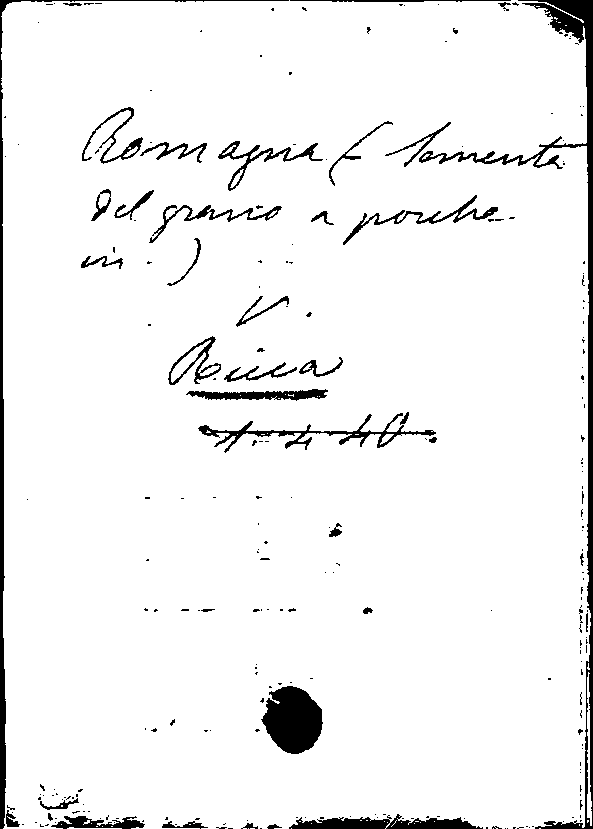 Romagna (Sementa
del grano a porche
in .)
V.
Ricca
1-4-40.